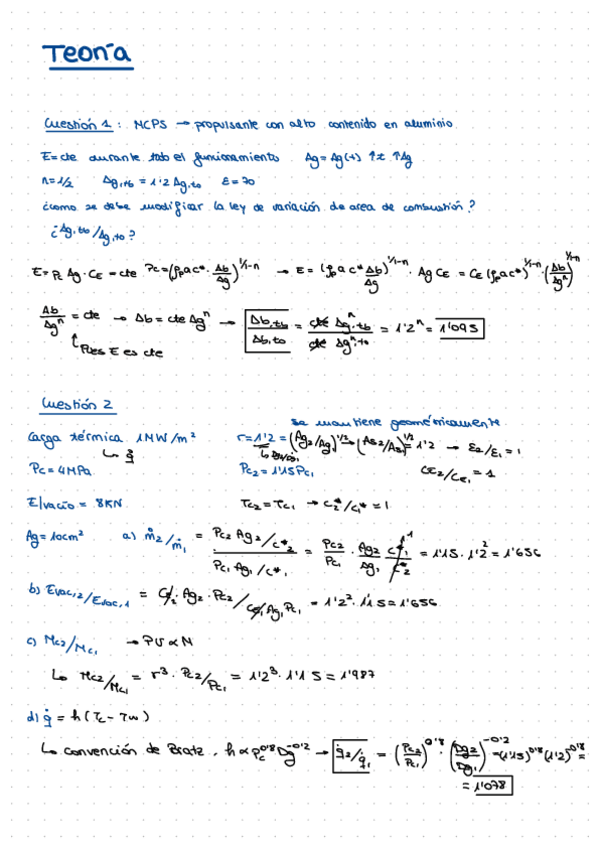 Teoría
Cuestión 1: MCPS → propulsante con alto contenido en aluminio
E=cte durante todo el funcionamiento Ag=Ag(t) ↑t ↑Ag
n=1/2 Ag,tb = 1'2 Ag,to ε=70
¿como se debe modificar la ley de variación de area de combustión?
¿Ab,tb/Ab,to?
E=Pc Ag·CE=cte Pc=(ρp a c* · Ab/Ag)^1/1-n → E=(ρp a c* Ab/Ag)^1/1-n · Ag CE = CE (ρp a c*)^1/1-n · (Ab/Ag^n)^1/1-n
Ab/Ag^n = cte → Ab=cte Ag^n → Ab,tb/Ab,to = cte Ag^n,tb/cte Ag^n,to = 1'2^n = 1'095
Pues E es cte
Cuestión 2
se mantiene geométricamente
Carga térmica 1MW/m² r=1'2=(Ag2/Ag1)^1/2 → (As2/As1)^1/2=1'2 → ε2/ε1=1
↳ q̇
Pc=4MPa Pc2=1'15Pc1 CE2/CE1=1
E|vacío = 8KN Tc2=Tc1 → c*2/c*1=1
Ag=10cm² a) ṁ2/ṁ1 = Pc2 Ag2/c*2 / Pc1 Ag1/c*1 = Pc2/Pc1 · Ag2/Ag1 · c*1/c*2 = 1'15·1'2² = 1'656
b) Evac,2/Evac,1 = CE2·Ag2·Pc2/CE1 Ag1 Pc1 = 1'2²·1'15=1'656
c) Mc2/Mc1 → PV∝M
↳ Mc2/Mc1 = r³·Pc2/Pc1 = 1'2³·1'15=1'987
d) q̇ = h(Tc-Tw)
↳ convención de Bratz. h∝Pc^0'8 Dg^-0'2 → q̇2/q̇1 = (Pc2/Pc1)^0'8 · (Dg2/Dg1)^-0'2 = (1'15)^0'8 (1'2)^-0'2 =
= 1'078